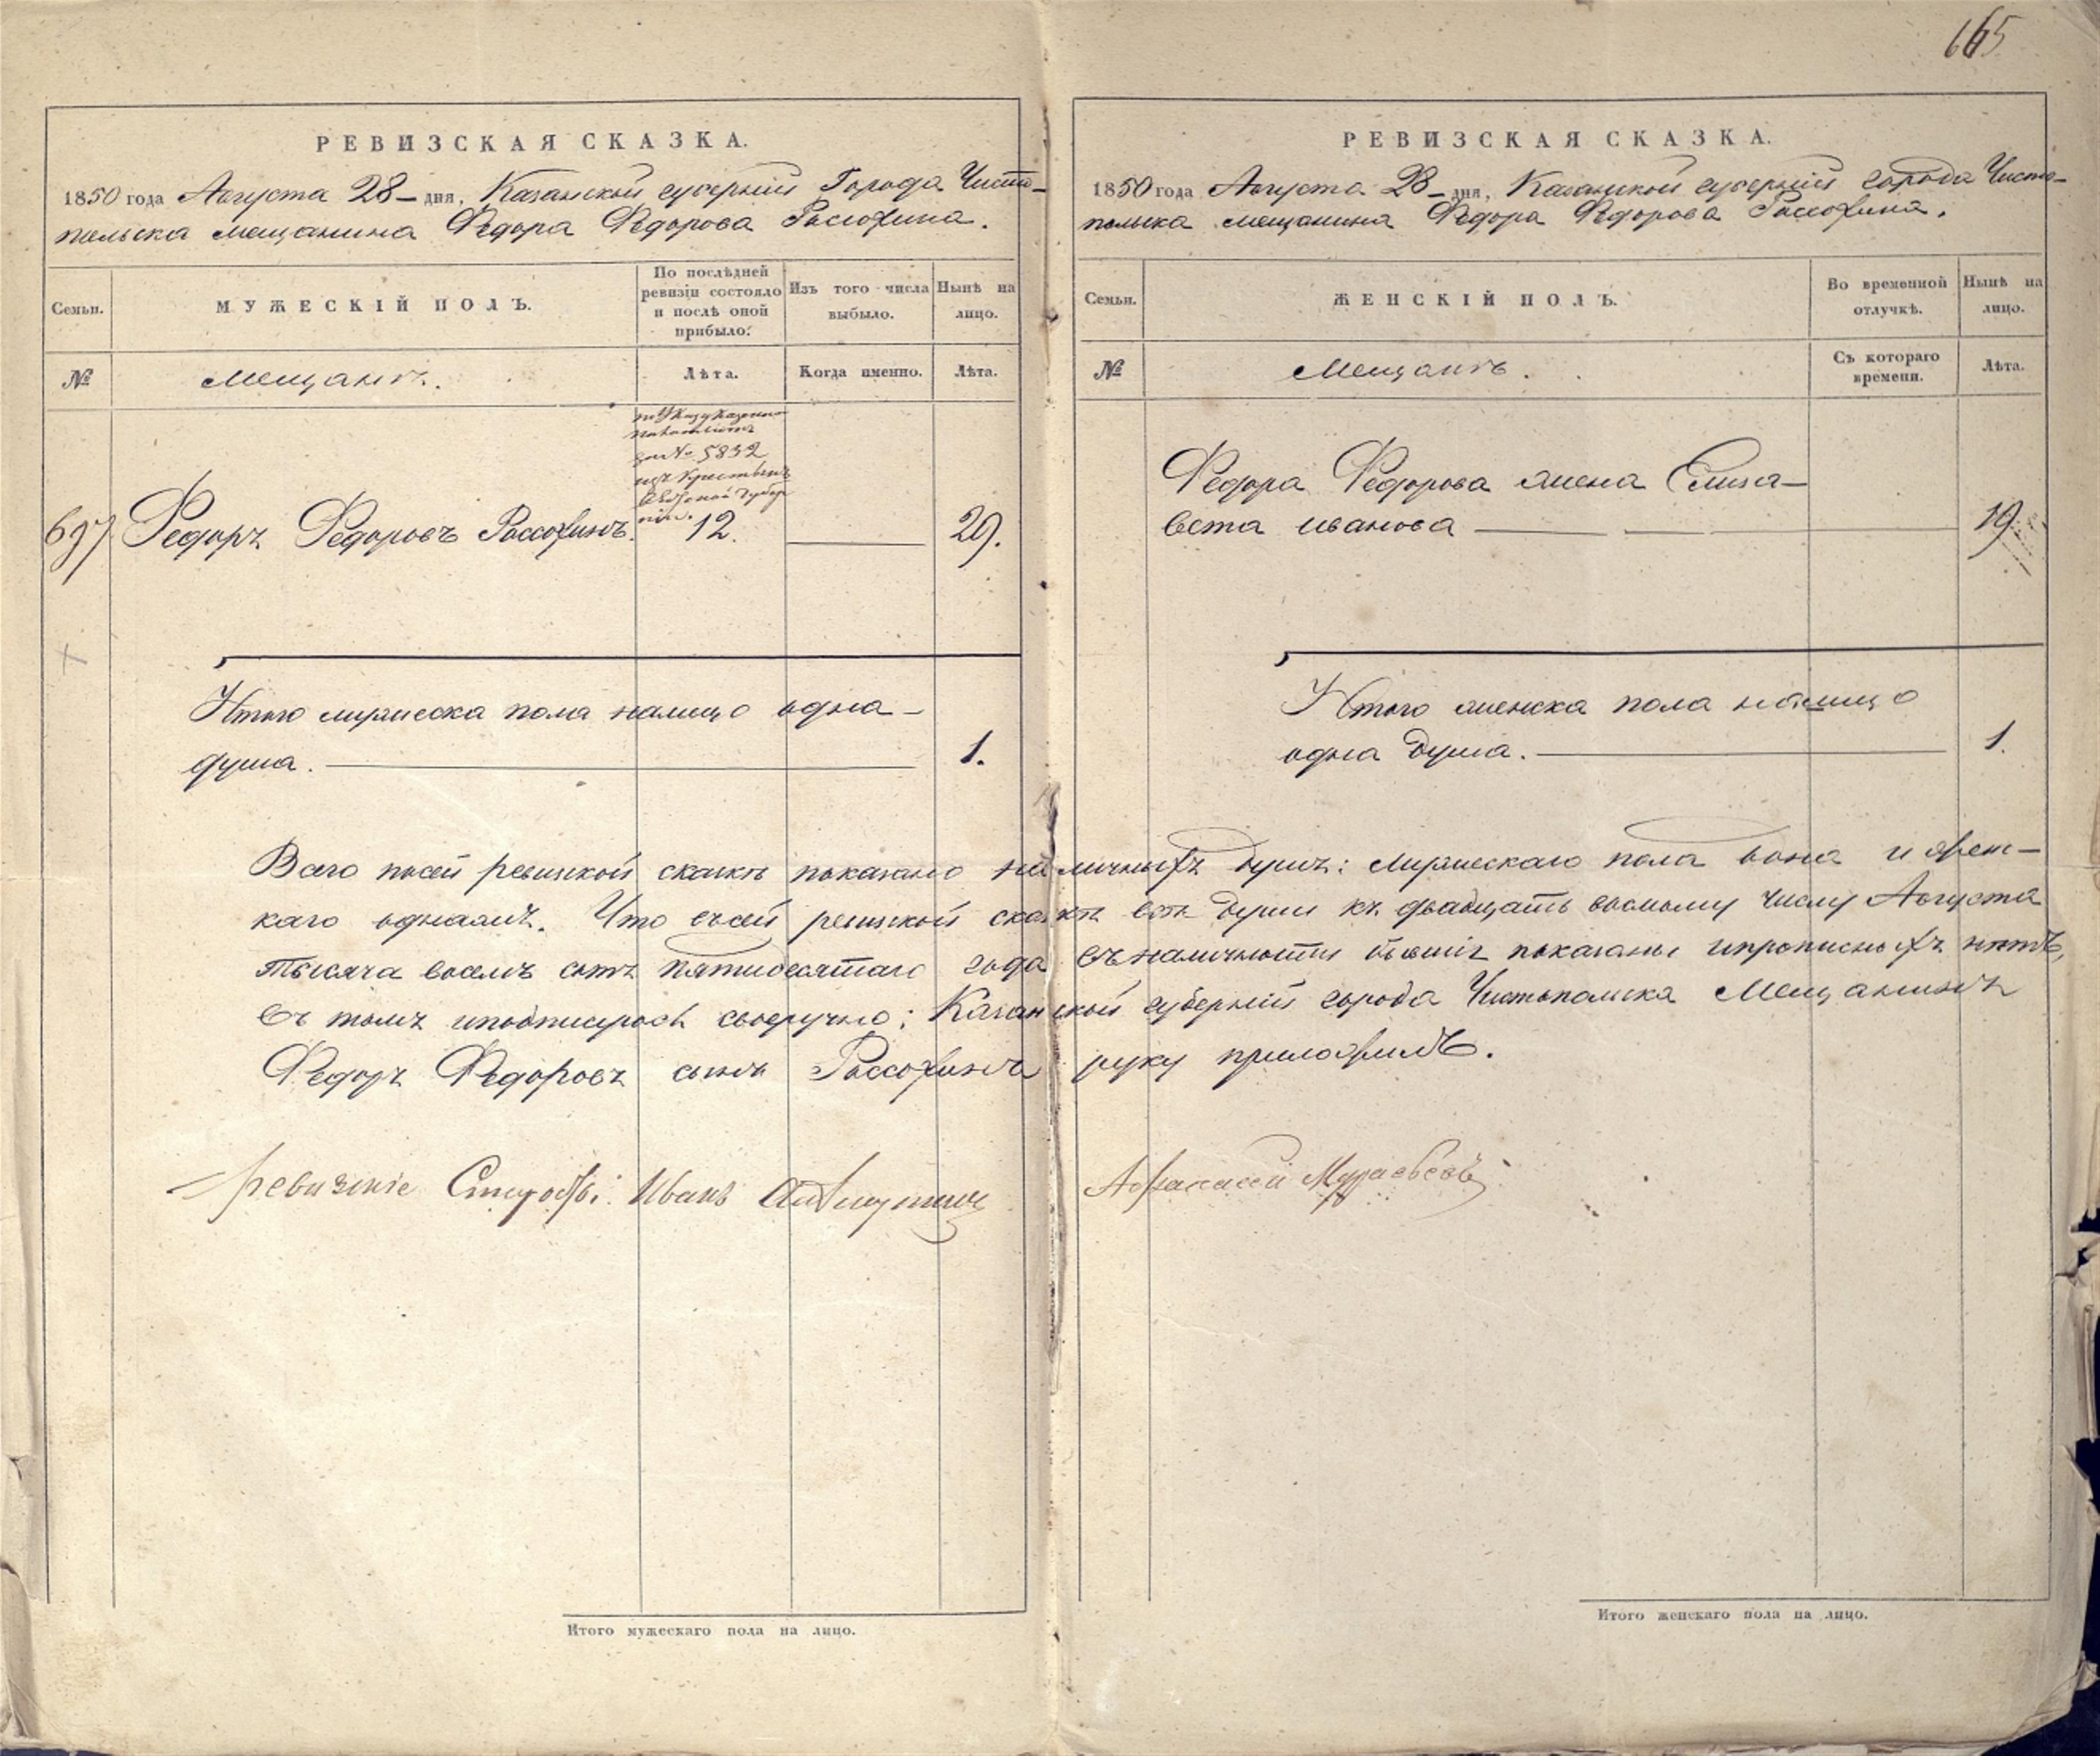 165
РЕВИЗСКАЯ СКАЗКА.
1850 года Августа 28 дня, Казанской губерніи Города Чисто-
польска мещанина Федора Федорова Рассохина.
Семьи.
МУЖЕСКІЙ ПОЛЪ.
По послѣдней ревизіи состояло и послѣ оной прибыло:
Изъ того числа выбыло.
Нынѣ на лицо.
№
Мещанъ.
Лѣта.
Когда именно.
Лѣта.
по Указу Казенной
за № 5832
изъ Крестьянъ
губер
ніи.
697 Федоръ Федоровъ Рассохинъ. 12. 29.
Итого мужеска пола налицо одна
душа. 1.
РЕВИЗСКАЯ СКАЗКА.
1850 года Августа 28 дня, Казанской губерніи города Чисто-
польска мещанина Федора Федорова Рассохина.
Семьи.
ЖЕНСКІЙ ПОЛЪ.
Во временной отлучкѣ.
Нынѣ на лицо.
№
Мещанъ.
Съ котораго времени.
Лѣта.
Федора Федорова жена Елиза-
вета иванова 19.
Итого женска пола налицо
одна душа. 1.
Всего посей ревизской сказкѣ показано наличныхъ душъ: мужескаго пола одна и жен-
каго однажъ. Что въсей ревизской сказкѣ всѣ души къ двадцать восьмому числу Августа
тысяча восемь сотъ пятидесятаго года въналичности бывшіе показаны ипрописныхъ нѣтъ,
въ томъ иподписуюсь своеручно: Казанской губерніи города Чистопольска Мещанинъ
Федоръ Федоровъ сынъ Рассохинъ руку приложилъ.
Иванъ
Итого мужескаго пола на лицо.
Итого женскаго пола на лицо.